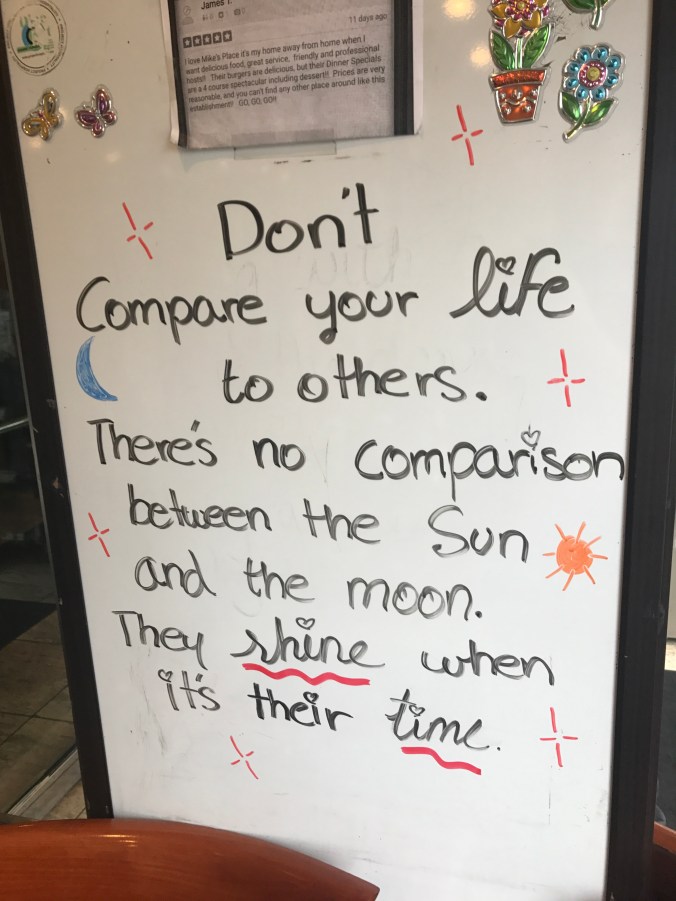 James T.
11 days ago
I love Mike's Place it's my home away from home when I
want delicious food, great service, friendly and professional
hosts!! Their burgers are delicious, but their Dinner Specials
are a 4 course spectacular including dessert!! Prices are very
reasonable, and you can't find any other place around like this
establishment!! GO, GO, GO!!
Don't
Compare your life
to others.
There's no comparison
between the Sun
and the moon.
They shine when
it's their time.